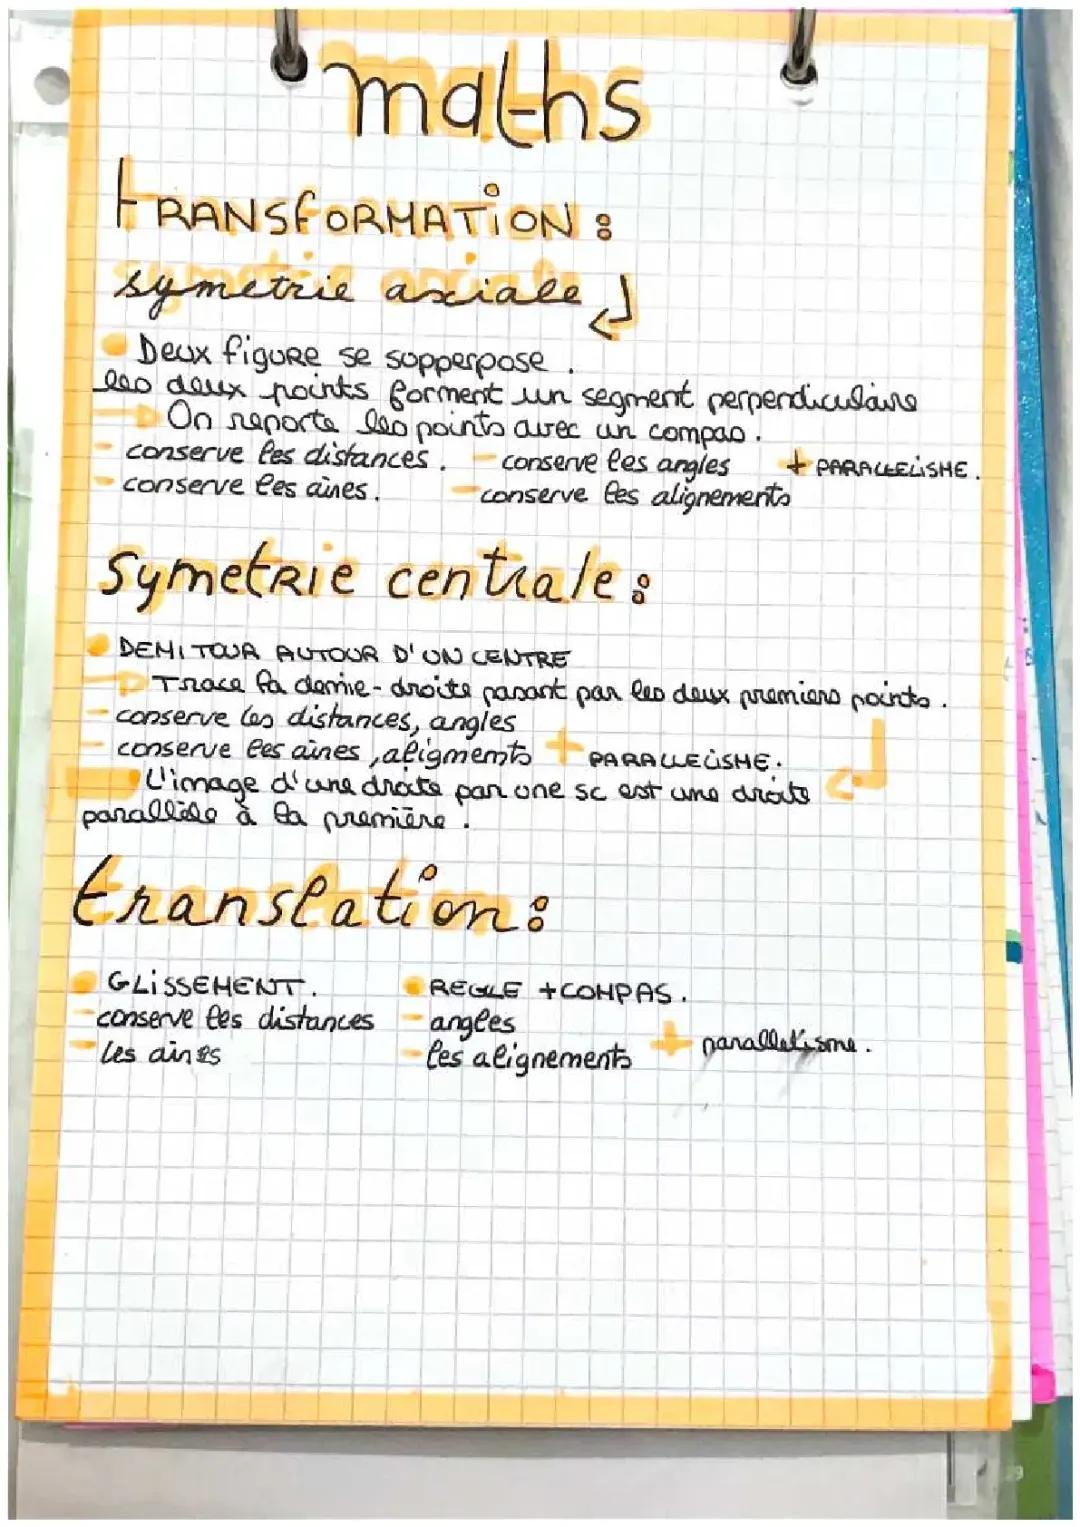 maths
tRANSfORMATiON :
symetrie axiale
Deux figure se supperpose .
les deux points forment un segment perpendiculaire
On reporte les points avec un compas .
conserve les distances . - conserve les angles + PARALLELiSME .
- conserve les aires . - conserve les alignements
SymetRie centrale :
DEMI TOUR AUTOUR D'UN CENTRE
Trace la demie-droite pasant par les deux premiers points .
- conserve les distances, angles
- conserve les aires , aligments + PARALLELiSME .
L'image d'une droite par une sc est une droite
parallèle à la première .
translation :
GLiSSEMENT . REGLE + COMPAS .
- conserve les distances - angles
- les aires - les alignements + parallelisme .